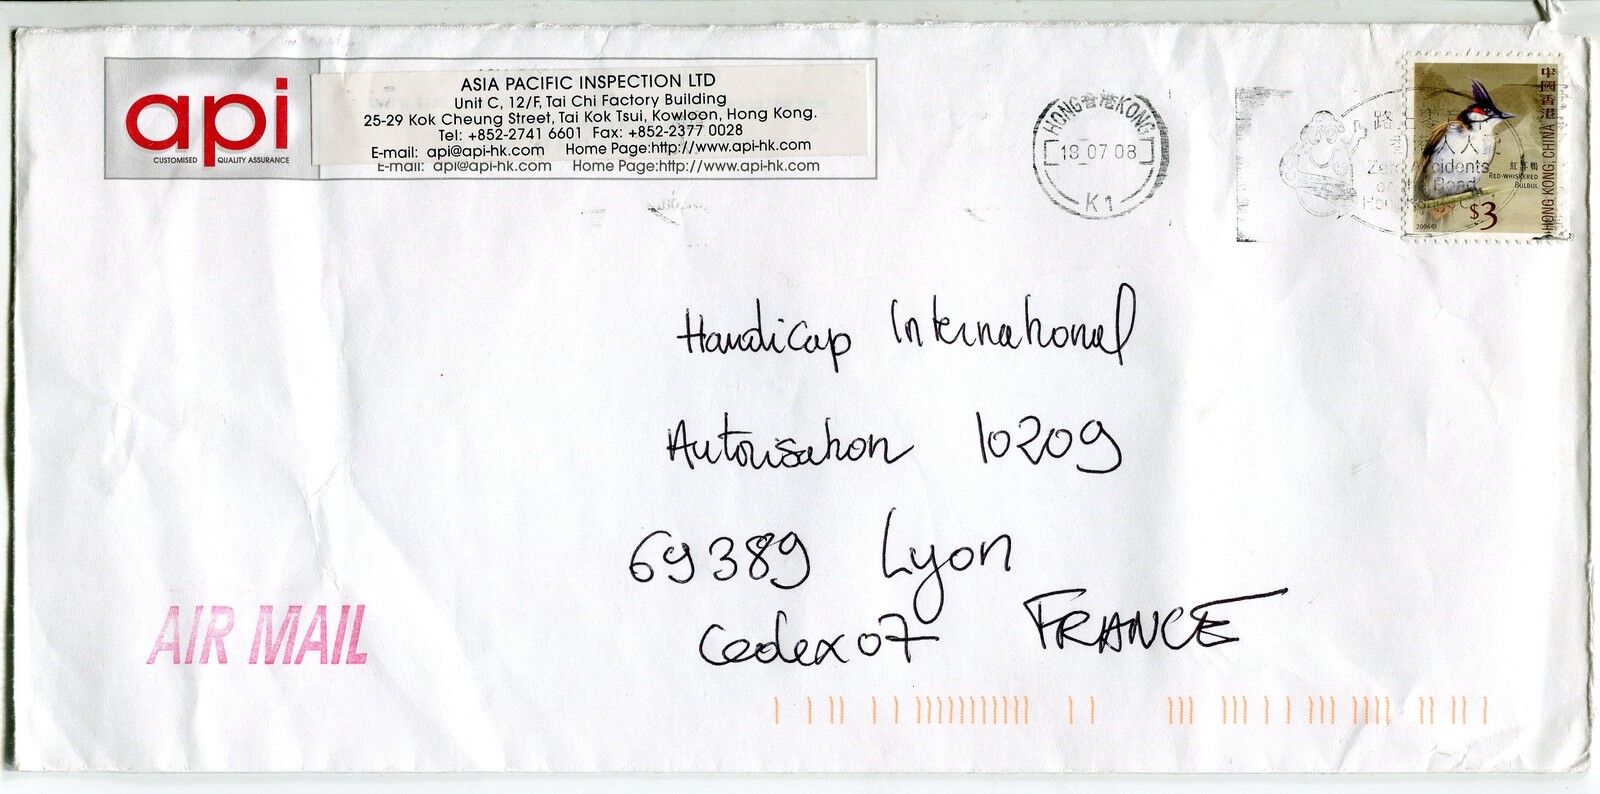 api
CUSTOMISED QUALITY ASSURANCE
ASIA PACIFIC INSPECTION LTD
Unit C, 12/F, Tai Chi Factory Building
25-29 Kok Cheung Street, Tai Kok Tsui, Kowloon, Hong Kong.
Tel: +852-2741 6601 Fax: +852-2377 0028
E-mail: api@api-hk.com Home Page:http://www.api-hk.com
E-mail: api@api-hk.com Home Page:http://www.api-hk.com
HONG 香港 KONG
18 07 08
K1
Zero Accidents
on the Road
中國香港
HONG KONG, CHINA
RED-WHISKERED
BULBUL
$3
2006
Handicap International
Autorisation 10209
69389 Lyon
Cedex 07 FRANCE
AIR MAIL